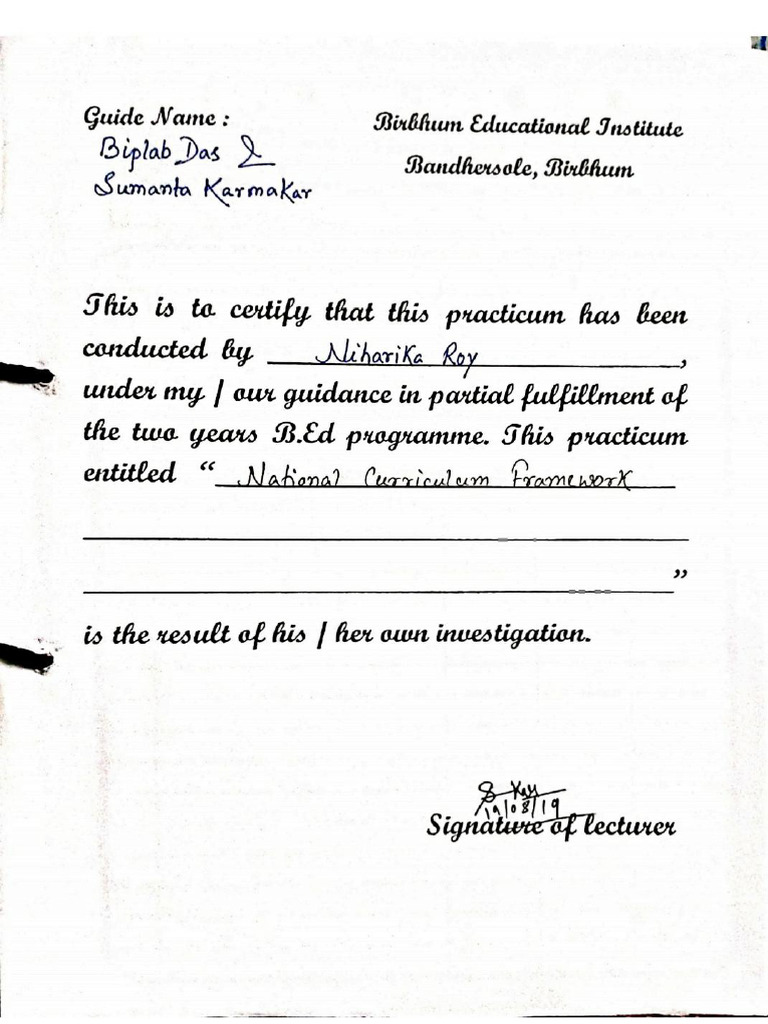 Guide Name :
Biplab Das &
Sumanta Karmakar
Birbhum Educational Institute
Bandhersole, Birbhum
This is to certify that this practicum has been
conducted by Niharika Roy ,
under my / our guidance in partial fulfillment of
the two years B.Ed programme. This practicum
entitled “ National Curriculum Framework
”
is the result of his / her own investigation.
19/08/19
Signature of lecturer